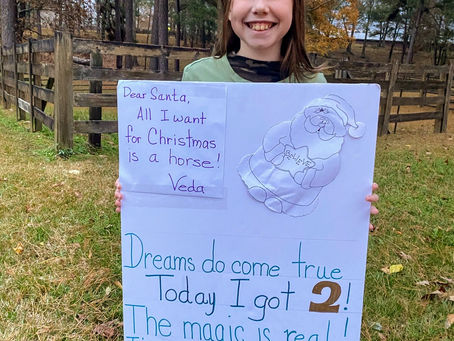 Dear Santa,
All I want
for Christmas
is a horse!
Veda
Believe
Dreams do come true
Today I got 2!
The magic is real!